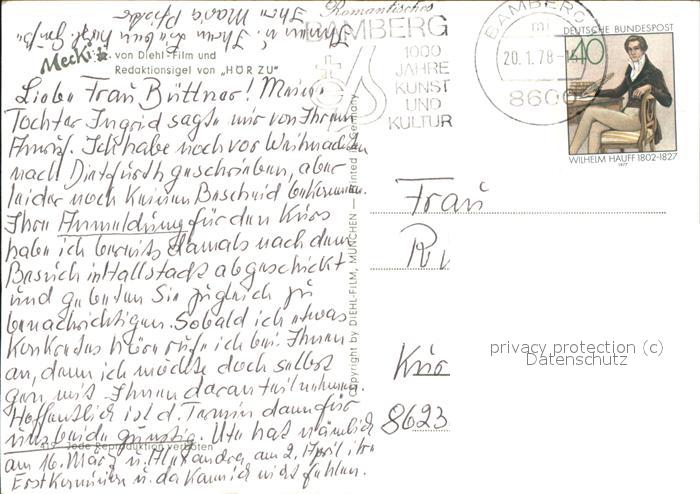 Ihnen u. Ihrem lieben
Ihre Maria
Mecki
von Diehl-Film und
Redaktionsigel von „HÖR ZU"
Liebe Frau Büttner! Meine
Tochter Ingrid sagte mir von Ihrem
Anruf. Ich habe noch vor Weihnachten
nach Dietfurth geschrieben, aber
leider noch keinen Bescheid bekommen.
Ihre Anmeldung für den Kurs
habe ich bereits damals nach dem
Besuch in Hallstadt abgeschickt
und gebeten Sie zugleich zu
benachrichtigen. Sobald ich etwas
Konkretes höre rufe ich bei Ihnen
an, denn ich möchte doch selbst
gern mit Ihnen daran teilnehmen.
Hoffentlich ist d. Termin dann für
uns beide günstig. Ute hat nämlich
am 16. März u. Alexandra am 2. April ihre
Erstkommunion u. da kann ich nicht fehlen.
419 Jede Reproduktion verboten
Copyright by DIEHL-FILM, MÜNCHEN — Printed in Germany
Romantisches
BAMBERG
1000
JAHRE
KUNST
UND
KULTUR
BAMBERG
ml
20.1.78
8600
DEUTSCHE BUNDESPOST
40
WILHELM HAUFF 1802-1827
1977
Frau
8623
privacy protection (c)
Datenschutz